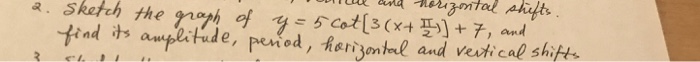 and horizontal shifts.
2. Sketch the graph of y = 5 cot[3(x+π/2)] + 7, and
find its amplitude, period, horizontal and vertical shifts
3